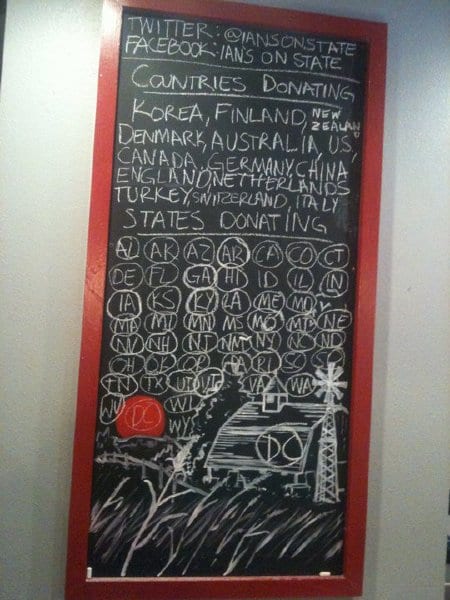 TWITTER: @IANSONSTATE
FACEBOOK: IAN'S ON STATE
COUNTRIES DONATING
KOREA, FINLAND, NEW ZEALAND
DENMARK, AUSTRALIA, US,
CANADA, GERMANY, CHINA
ENGLAND, NETHERLANDS
TURKEY, SWITZERLAND, ITALY
STATES DONATING
AL AK AZ AR CA CO CT
DE FL GA HI ID IL IN
IA KS KY LA ME MD
MA MI MN MS MO MT NE
NV NH NJ NM NY NC ND
OH OK OR PA RI SC SD
TN TX UT VT VA WA
WV DC WI
WY DC